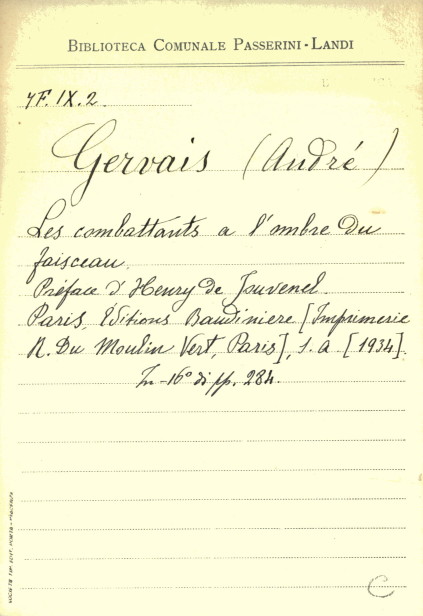 BIBLIOTECA COMUNALE PASSERINI-LANDI
7F. IX. 2.
Gervais (André)
Les combattants a l'ombre du
faisceau.
Préface d'Henry de Jouvenel.
Paris, Éditions Baudiniere [Imprimerie
R. Du Moulin Vert, Paris], s. a [1934].
In-16° di pp. 284.
C